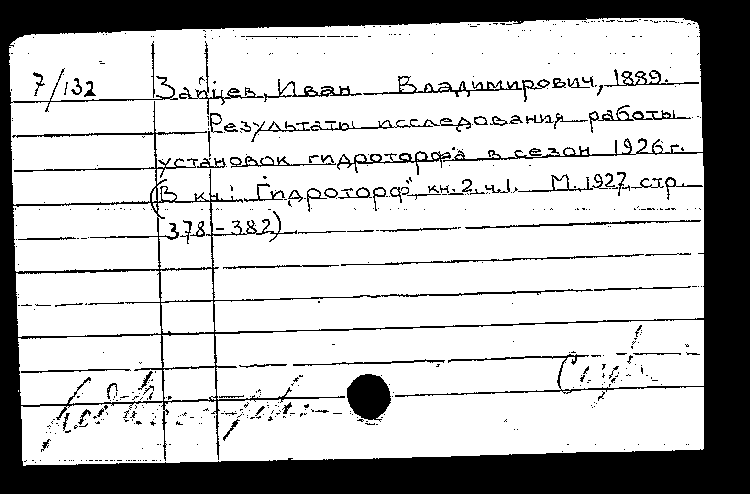 7/132 Зайцев, Иван Владимирович, 1889.
Результаты исследования работы
установок гидроторфа в сезон 1926 г.
(В кн.: "Гидроторф", кн. 2. ч. 1. М. 1927, стр.
378-382)